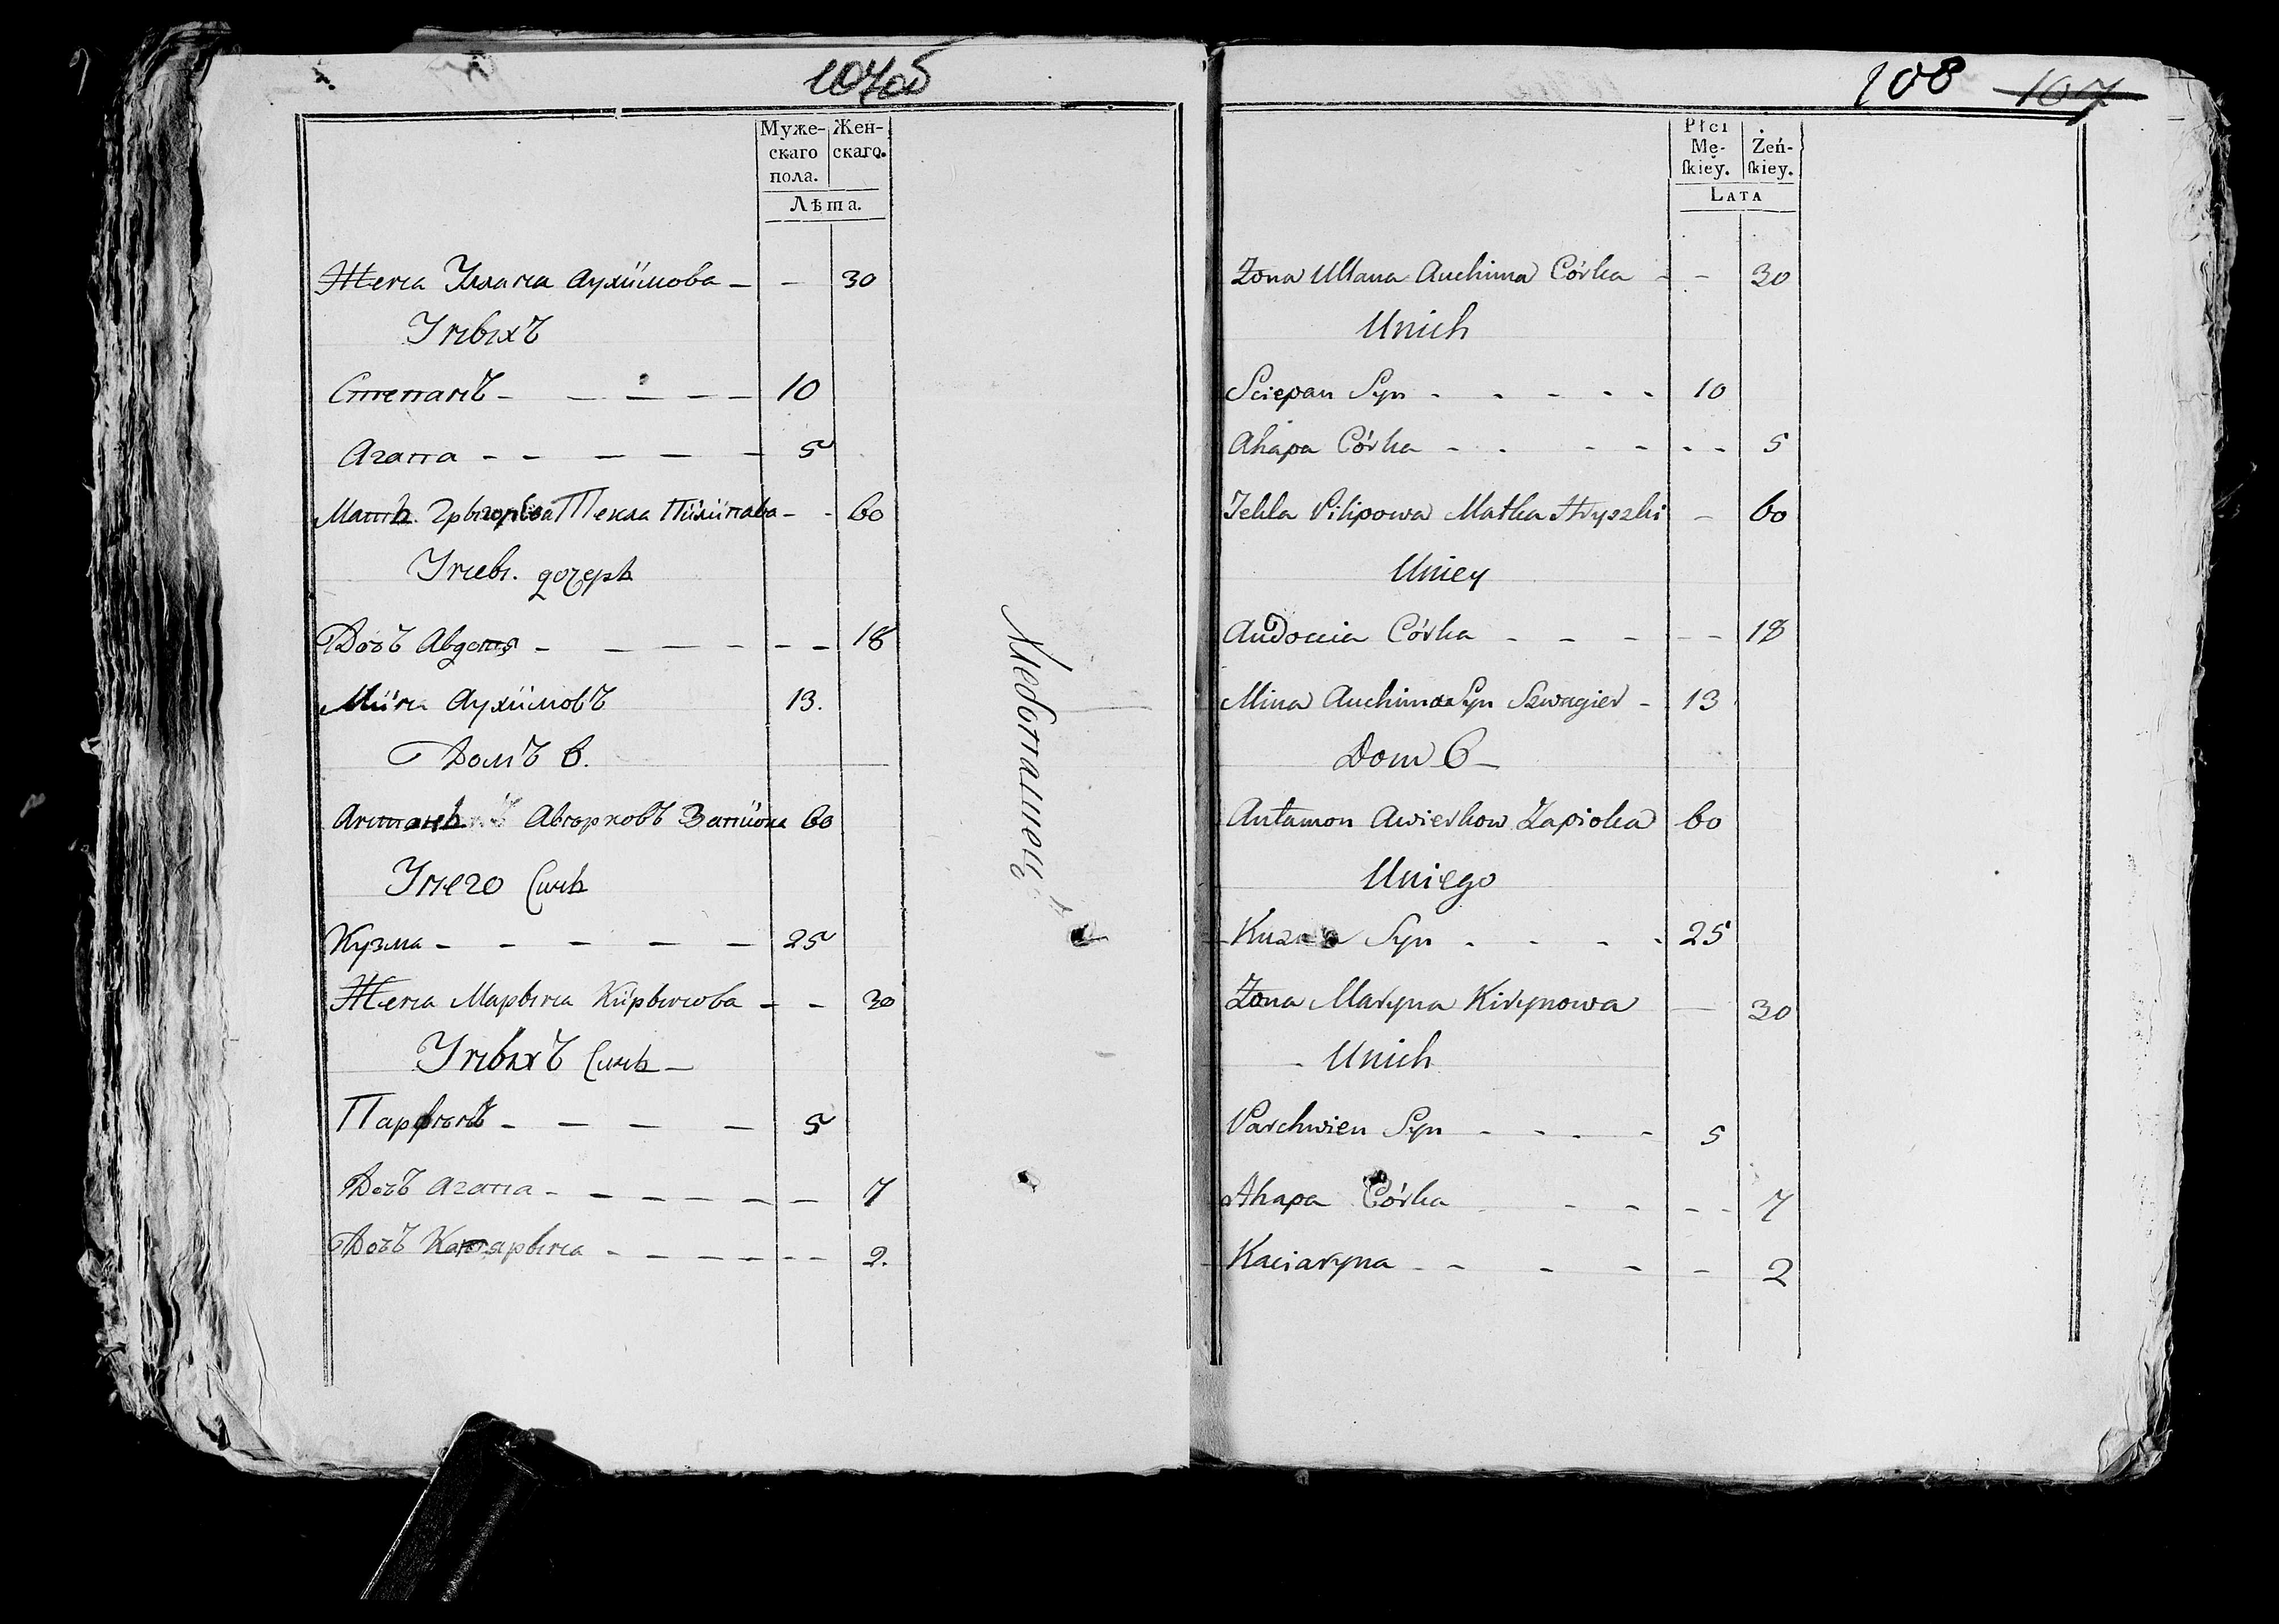 107об
Муже-
скаго
пола.
Жен-
скаго.
Лѣта.
Жена Уляна Аухимова – – 30
У ныхъ
Степанъ – – – – – 10
Агапа – – – – – 5
Мать Грыгорова Текла Пилипава – – 60
У неы. дочеръ
Дочъ Авдотя – – – – – – 18
Мина Аухимовъ 13.
Домъ 6.
Авсорковъ Запiока 60
У него Сынъ
Кузма – – – – – 25
Жена Марына Кирынова – – 30
У ныхъ Сынъ –
Парфѣнъ – – – – 5
Дочъ Агапа – – – – – – 7
Дочъ Катярына – – – – – – 2.
108 107
Płci
Mę-
ſkiey.
Żeń-
ſkiey.
Lata
Żona Ullana Auchima Córka – – 30
Unich
Sciepan Syn - - - - - 10
Ahapa Córka - - - - - - 5
Tekla Pilipowa Matka Hryszki – 60
Uniey
Audoccia Córka – – – – – 18
Mina Auchima Syn Szwagier – 13
Dom 6 –
Antamon Awierkow Zapioka 60
Uniego
Kuzma Syn - - - - 25
Żona Maryna Kirynowa — 30
Unich
Parchwien Syn - - - - 5
Ahapa Córka - - - - - 7
Kaciaryna - - - - - 2